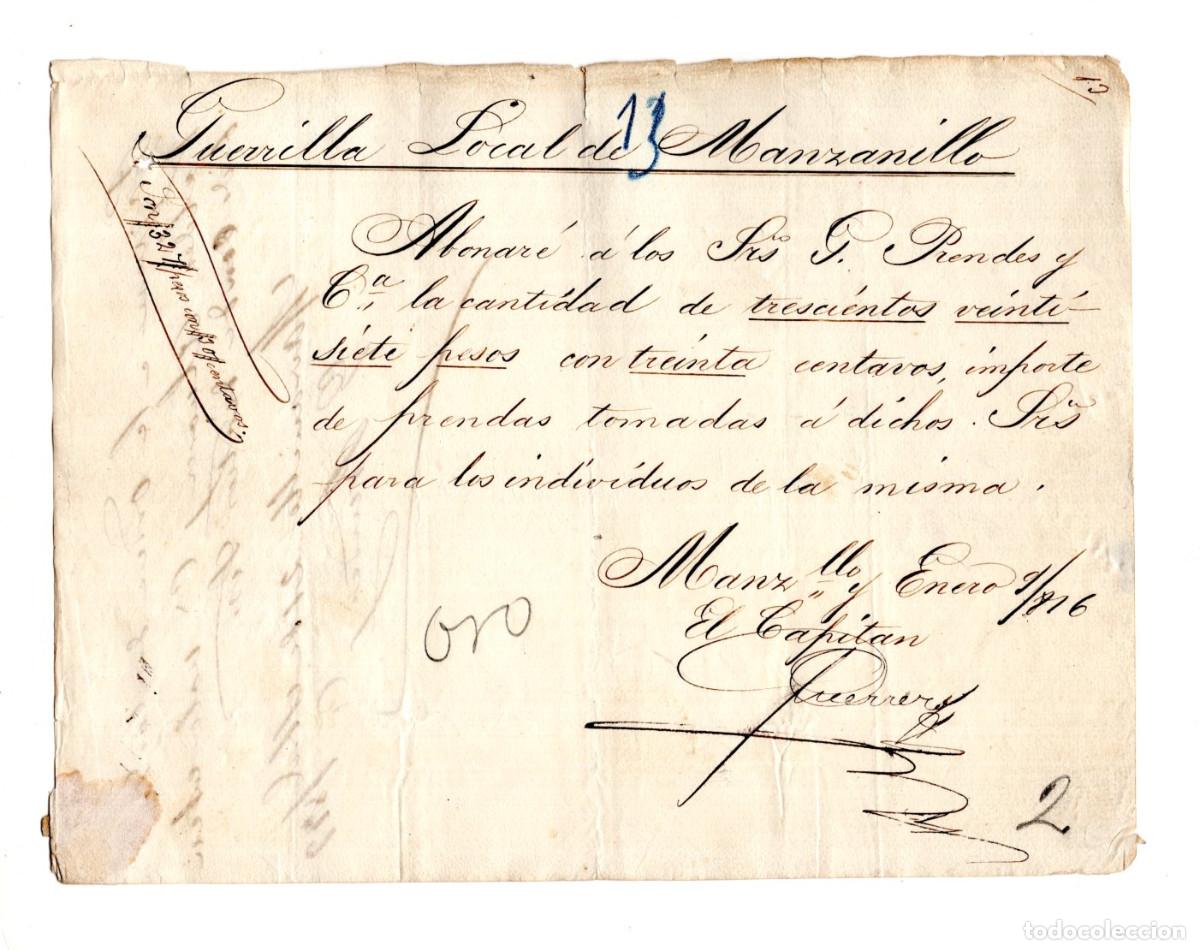 13
13
Guerrilla Local de Manzanillo
Son $327 pesos con 30 centavos
Abonaré á los Srs G. Rendes y
Cª la cantidad de trescientos veinti-
siete pesos con treinta centavos, importe
de prendas tomadas á dichos. Srs
para los individuos de la misma.
Manzllo y Enero 9/76
El Capitan
Guerrero
oro
2
todocoleccion